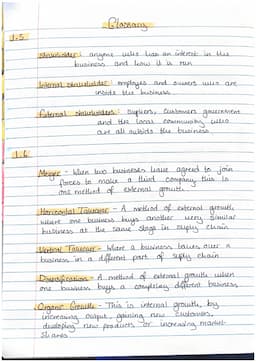 Glossary
1.5
Stakeholder : anyone who has an interest in the
business and how it is run
Internal stakeholder : employes and owners who are
inside the business
External stakeholders : supliers, customers goverment
and the local community who
are all outside the business
1.6
Merger - When two businesses have agreed to join
forces to make a third company this is
one method of external growth
Horizontal Takeover - A method of external growth
where one business buys another very similar
business at the same stage in suply chain
Vertical Takeover - Where a business takes over a
business in a different part of suply chain
Diversification - A method of external growth when
one business buys a completley different business
Organic Growth - This is internal growth, by
increasing output, gaining new customers,
developing new products or increasing market
shares